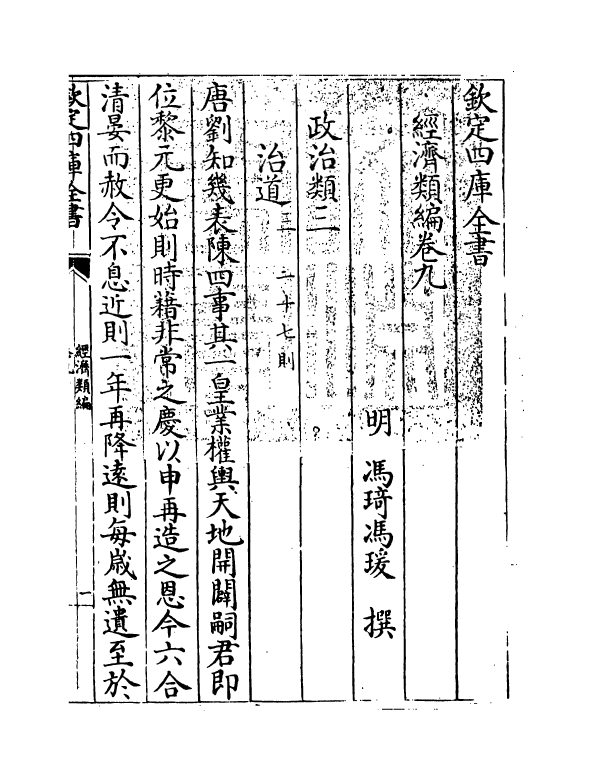 欽定四庫全書
經濟類編卷九
明 馮琦馮瑗 撰
政治類二
治道二 二十七則
唐劉知幾表陳四事其一皇業權輿天地開闢嗣君即
位黎元更始則時藉非常之慶以申再造之恩今六合
清晏而赦令不息近則一年再降遠則每歲無遺至於
欽定四庫全書
經濟類編
卷九